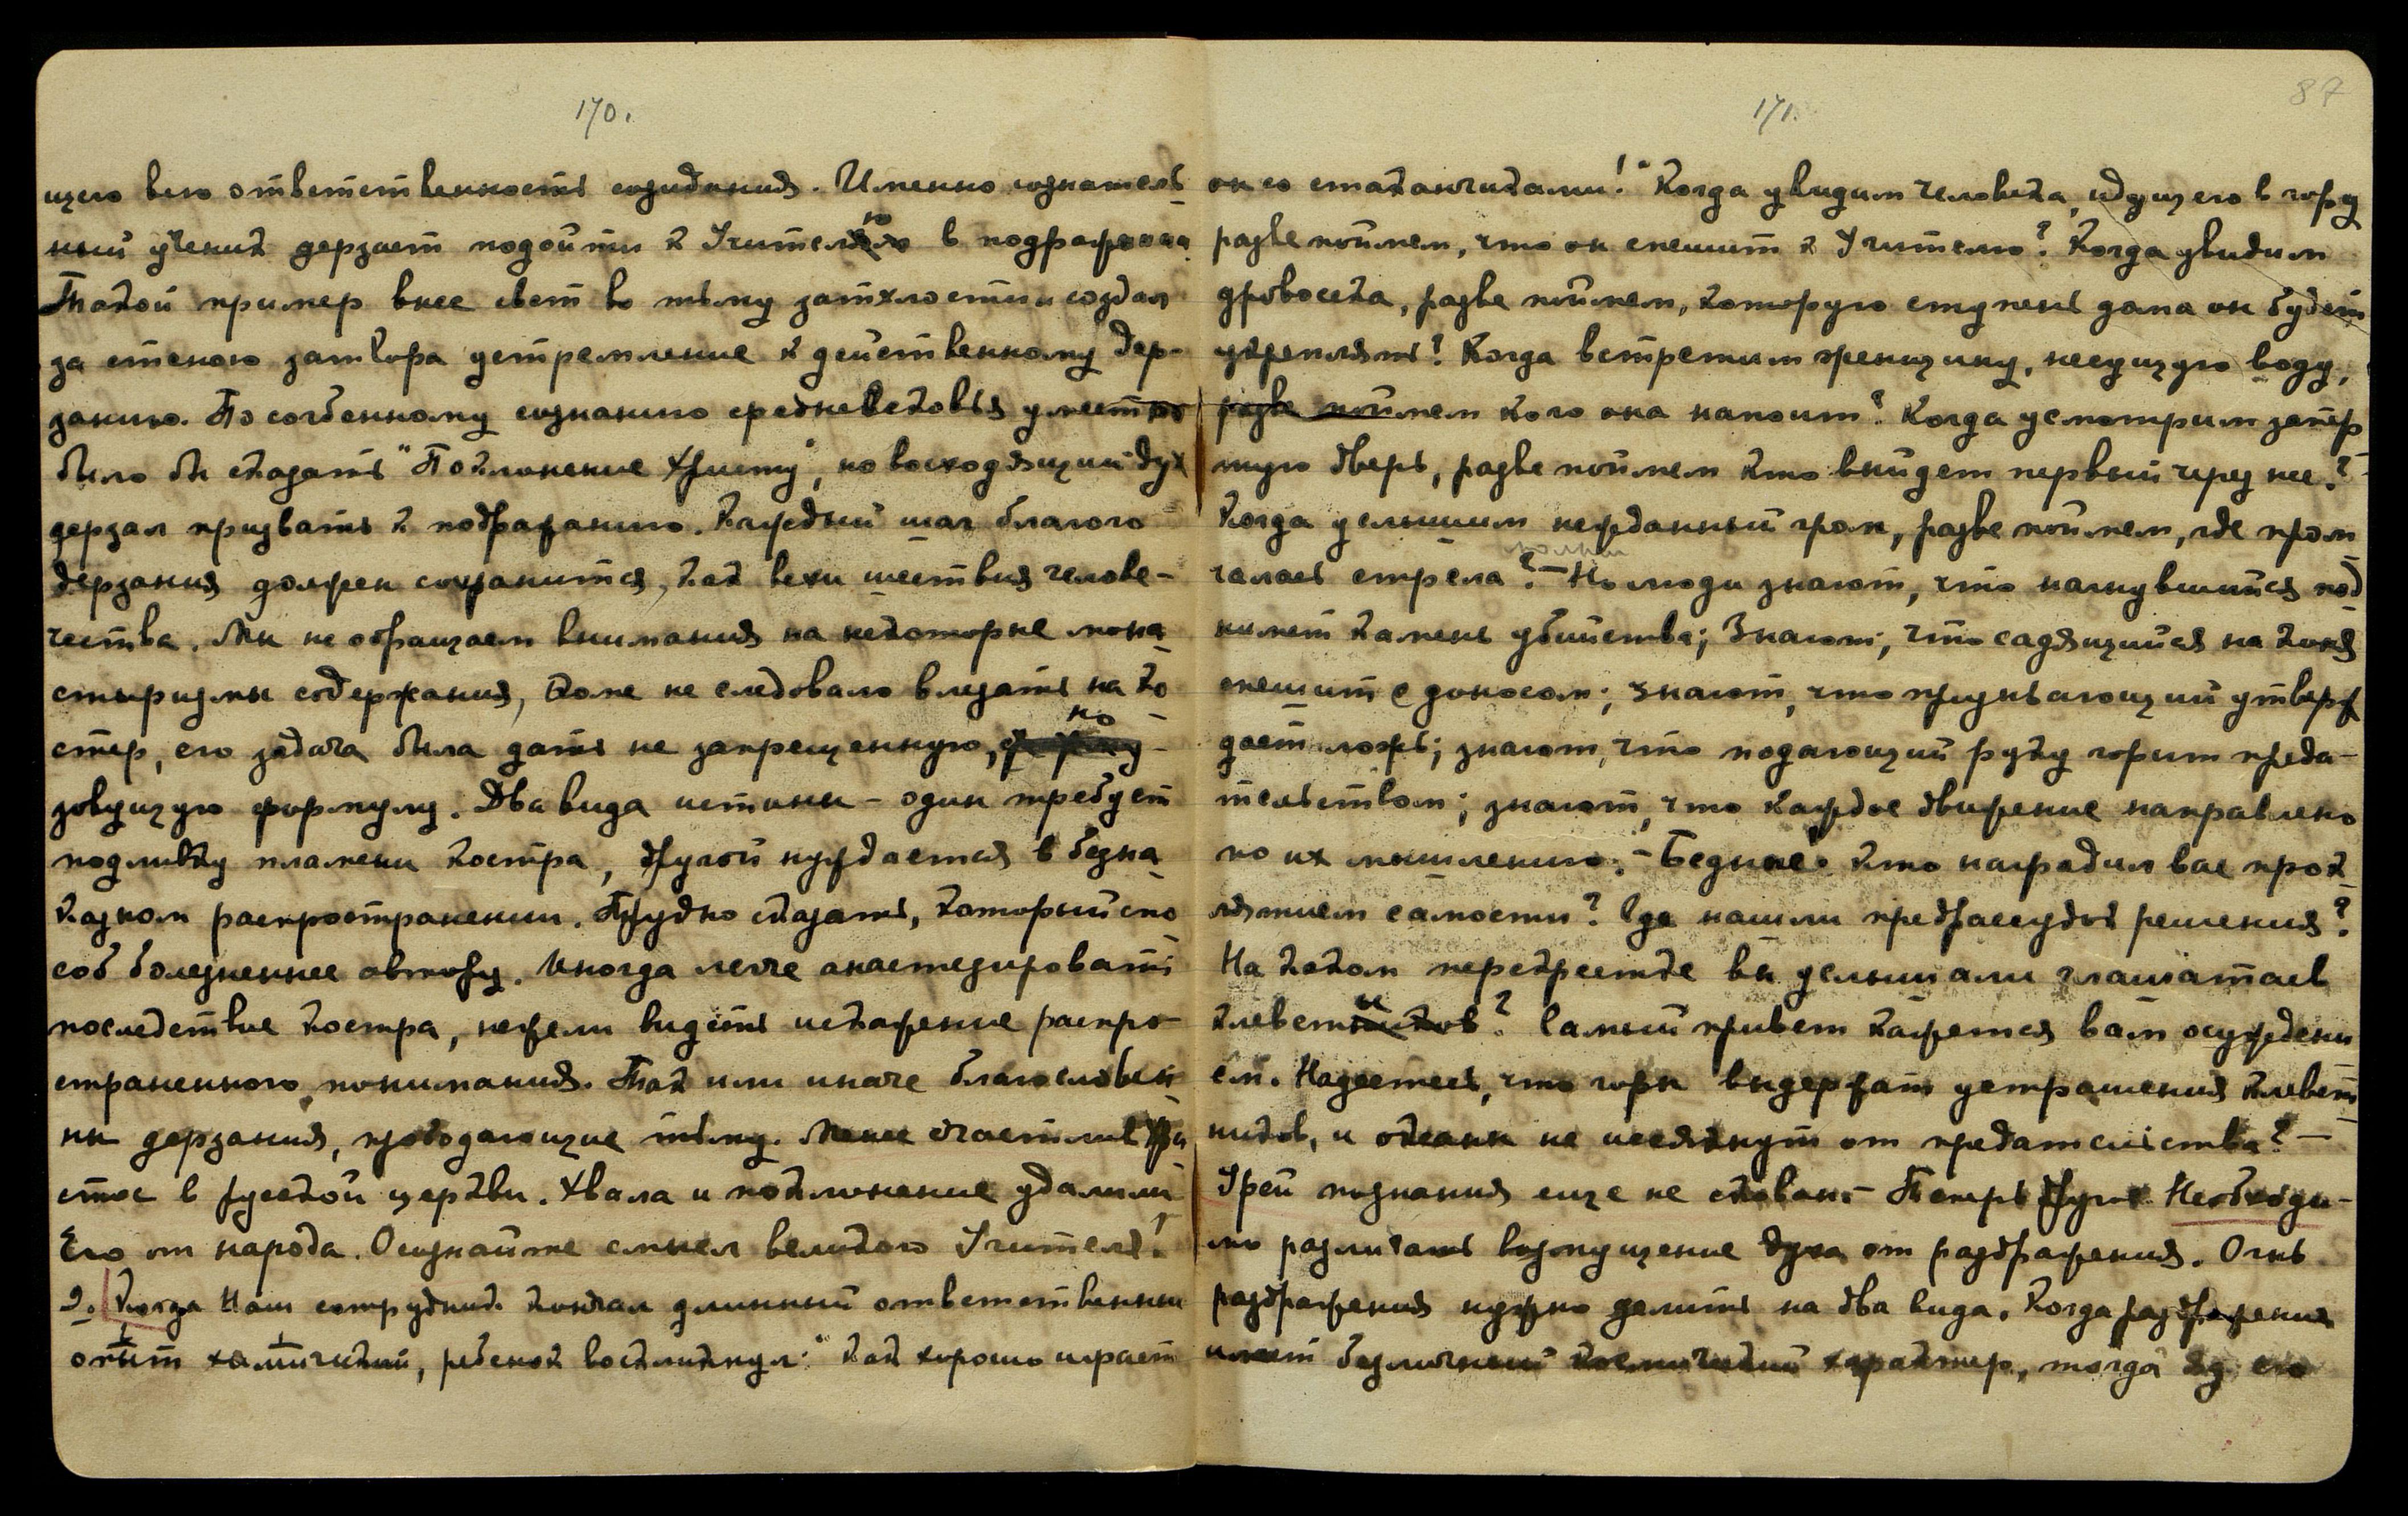 170.
щего всю ответственность созидания. Именно сознатель
ный ученик дерзает подойти к Учителю в подражании.
Такой пример внес свет во тьму затхлости и создал
за стеною затвора устремление к действенному дер-
занию. По согбенному сознанию средневековья уместно
было бы сказать "Поклонение Христу", но восходящий дух
дерзал призвать к подражанию. Каждый шаг благого
дерзания должен сохраниться, как вехи шествия челове-
чества. Мы не обращаем внимания на некоторые мона
стыризмы содержания, Фоме не следовало влезать на ко
стер, его задача была дать не запрещенную, но
зовущую формулу. Два вида истины - один требует
подливку пламени костра, другой нуждается в безна
казном распространении. Трудно сказать, который спо
соб болезненнее автору. Иногда легче анастезировать
последствие костра, нежели видеть искажение распро-
страненного понимания. Так или иначе благословен
ны дерзания, прободающие тьму. Менее счастлив Хри
стос в русской церкви. Хвала и поклонение удалили
Его от народа. Осознайте смысл великого Учителя!
2. Когда Наш сотрудник кончал длинный ответственный
опыт химический, ребенок воскликнул: "как хорошо играет
171.
87
он со стаканчиками!" Когда увидим человека, идущего в гору
разве поймем, что он спешит к Учителю? Когда увидим
дровосека, разве поймем, которую ступень дома он будет
укреплять? Когда встретим женщину, несущую воду,
разве поймем кого она напоит? Когда усмотрим запер
тую дверь, разве поймем кто внидет первый через нее?
Когда услышим нежданный гром, разве поймем, где пром
молнии
чалась стрела? - Но люди знают, что нагнувшийся под
нимет камень убийства; Знают, что садящийся на коня
спешит с доносом; знают, что утверж
дает ложь; знают, что подающий руку горит преда-
тельством; знают, что каждое движение направлено
по их мышлению. - Бедные. Кто наградил вас прок
лятием самости? Где нашли предрассудок решения?
На каком перекрестке вы услышали глашатаев
клеветы? Самый привет кажется вам осуждени
ем. Надеетесь, что горы выдержат устрашения клевет
ников, и океаны не иссякнут от предательства? -
Урей познания еще не скован. - Теперь другое. Необходи-
мо различать возмущение духа от раздражения. Огнь
раздражения нужно делить на два вида. Когда раздражение
имеет безличный космический характер, тогда яд его